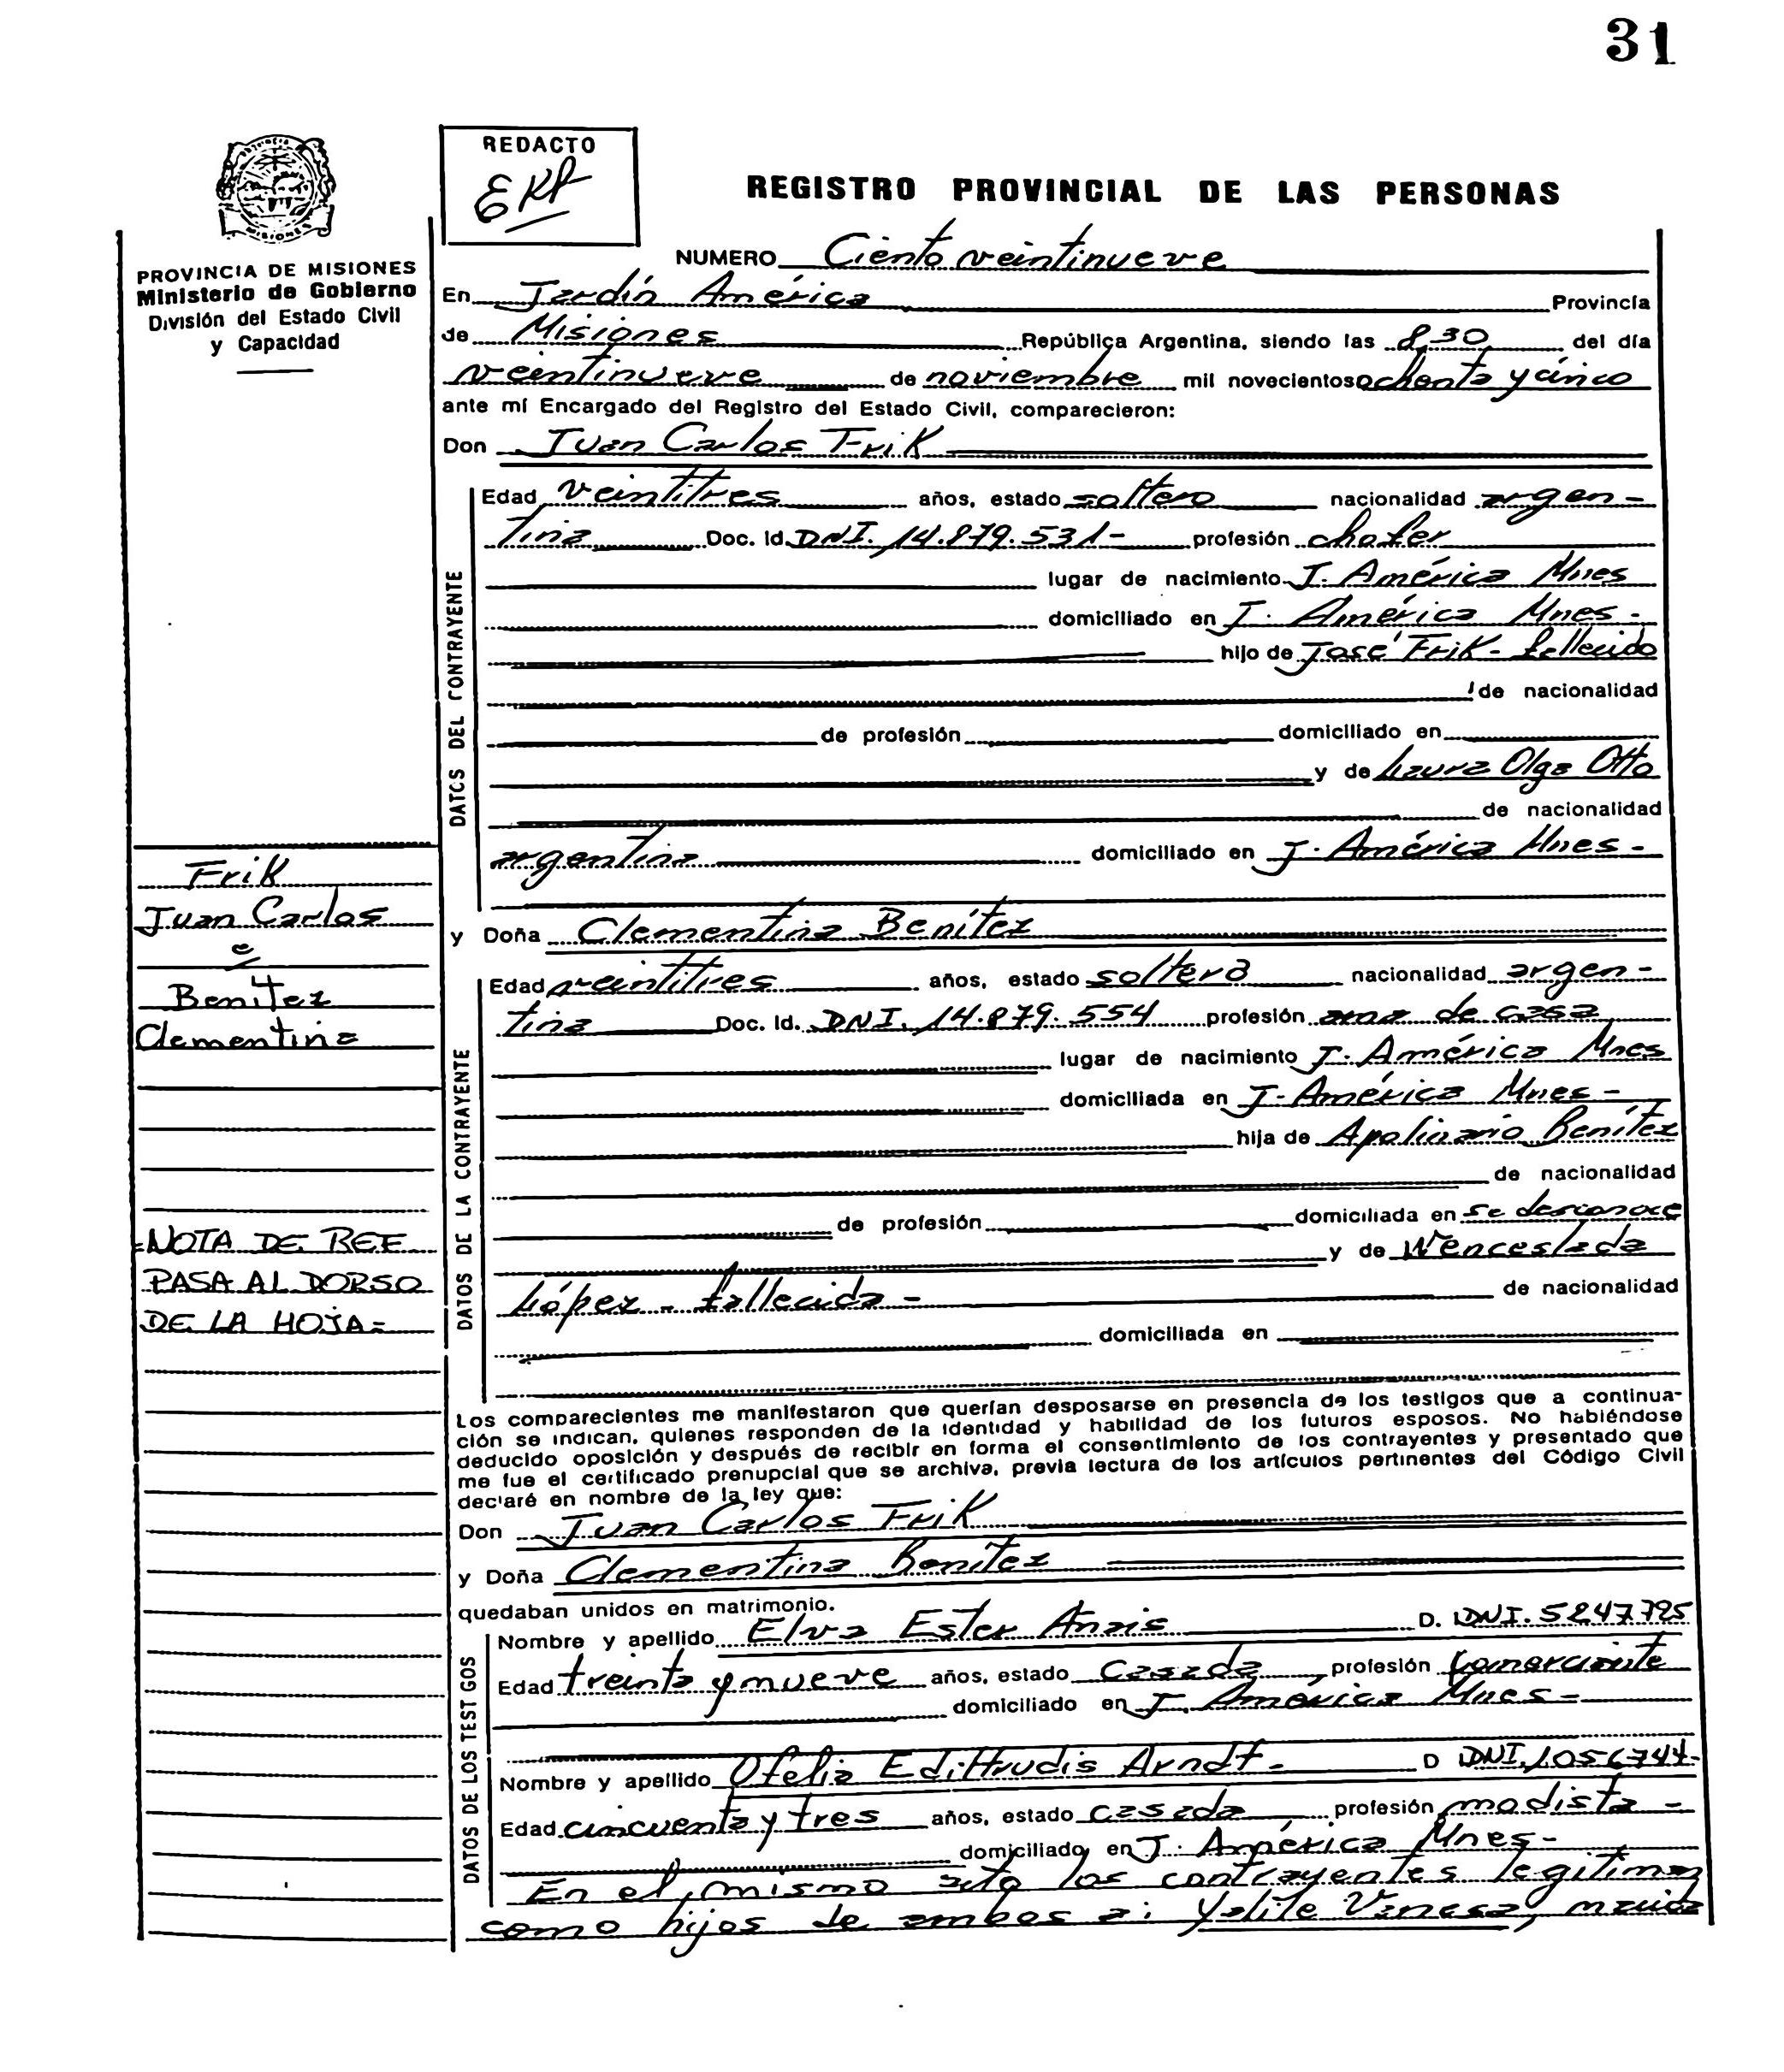 31
REDACTO
REGISTRO PROVINCIAL DE LAS PERSONAS
PROVINCIA DE MISIONES
Ministerio de Gobierno
División del Estado Civil
y Capacidad
NUMERO Ciento veintinueve
En Jardín América Provincia
de Misiones República Argentina, siendo las 8,30 del día
veintinueve de noviembre mil novecientos ochenta y cinco
ante mí Encargado del Registro del Estado Civil, comparecieron:
Don Juan Carlos Frik
DATOS DEL CONTRAYENTE
Edad veintitres años, estado soltero nacionalidad argen-
tina Doc. Id. DNI. 14.879.531- profesión chofer
lugar de nacimiento J. América Mnes
domiciliado en J. América Mnes-
hijo de José Frik - fallecido
de nacionalidad
de profesión domiciliado en
y de Laura Olga Otto
de nacionalidad
argentina domiciliado en J. América Mnes-
y Doña Clementina Benítez
DATOS DE LA CONTRAYENTE
Edad veintitres años, estado soltera nacionalidad argen-
tina Doc. Id. DNI. 14.879.554 profesión ama de casa
lugar de nacimiento J. América Mnes
domiciliada en J. América Mnes-
hija de Apolinario Benítez
de nacionalidad
de profesión domiciliada en se desconoce
y de Wenceslada
López - fallecida - de nacionalidad
domiciliada en
Frik
Juan Carlos
e
Benitez
Clementina
=NOTA DE REF
PASA AL DORSO
DE LA HOJA=
Los comparecientes me manifestaron que querían desposarse en presencia de los testigos que a continua-
ción se indican, quienes responden de la identidad y habilidad de los futuros esposos. No habiéndose
deducido oposición y después de recibir en forma el consentimiento de los contrayentes y presentado que
me fue el certificado prenupcial que se archiva, previa lectura de los artículos pertinentes del Código Civil
declaré en nombre de la ley que:
Don Juan Carlos Frik
y Doña Clementina Benítez
quedaban unidos en matrimonio.
DATOS DE LOS TESTIGOS
Nombre y apellido Elva Ester Anais D. DNI. 5247795
Edad treinta y nueve años, estado casada profesión comerciante
domiciliado en J. América Mnes-
Nombre y apellido Ofelia Edittrudis Arndt- D DNI. 1.056744-
Edad cincuenta y tres años, estado casada profesión modista -
domiciliado en J. América Mnes-
En el mismo acto los contrayentes legitiman
como hijos de ambos a: Yalile Vanesa, nacida